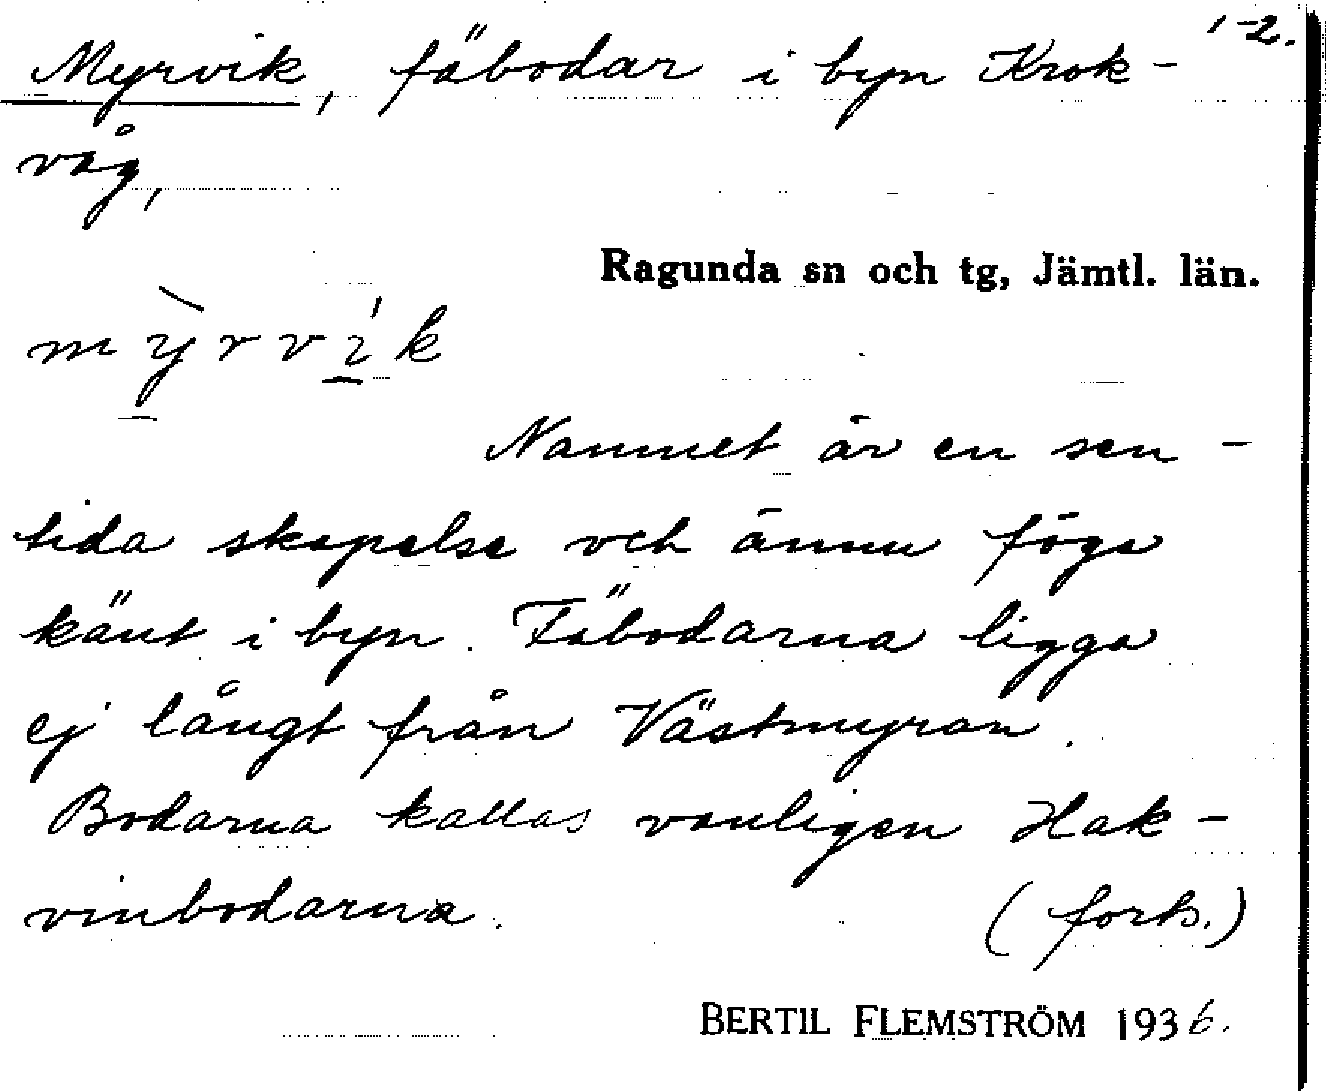 1-2.
Myrvik, fäbodar i byn Krok-
våg,
Ragunda sn och tg, Jämtl. län.
mỳrvík
Namnet är en sen-
tida skapelse och ännu föga
känt i byn. Fäbodarna ligga
ej långt från Västmyran.
Bodarna kallas vanligen Hak-
vinbodarna. (forts.)
BERTIL FLEMSTRÖM 1936.